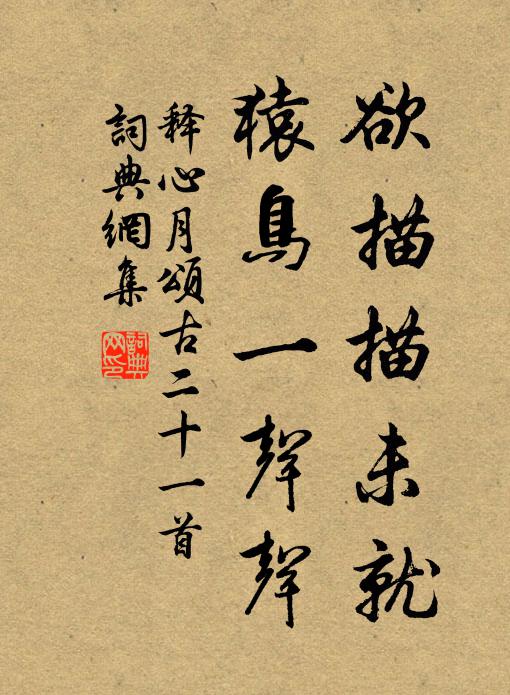 欲描描未就
猿鳥一聲聲
释心月頌古二十一首
詞典網集
詞典
网印